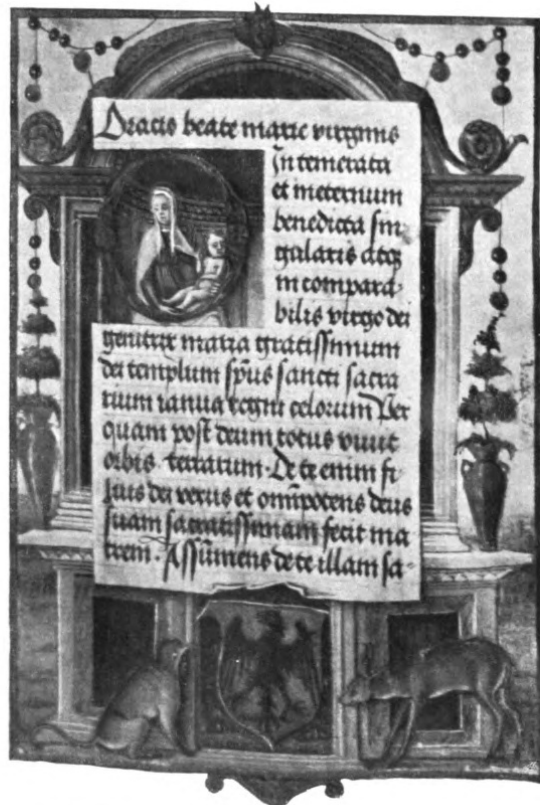 Oracio beate marie virginis
Intemerata
et ineternum
benedicta sin
gularis atq
incompara
bilis virgo dei
genitrix maria gratissimum
dei templum spũs sancti sacra
rium ianua regni celorum Per
quam post deum totus viuit
orbis terrarum. De te enim fi
lius dei verus et omĩpotens deus
suam sacratissimam fecit ma
trem. Assumens de te illam sa-